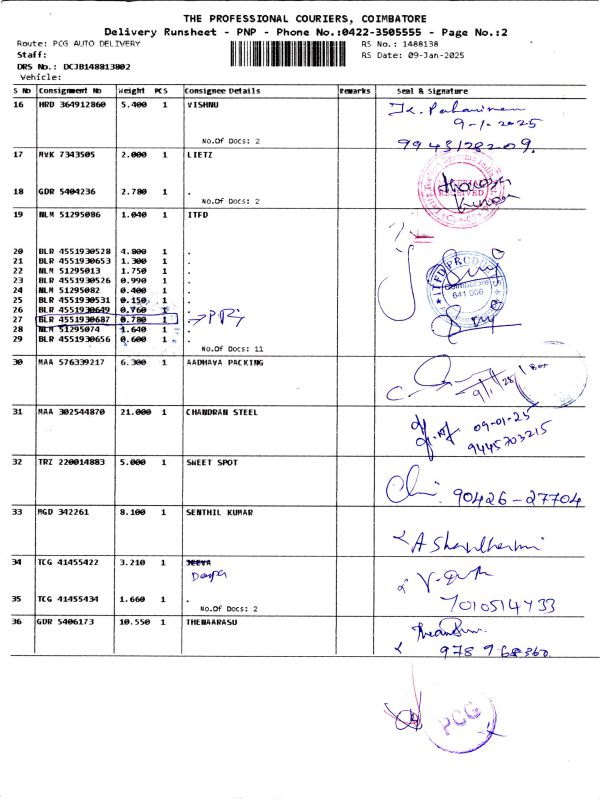 THE PROFESSIONAL COURIERS, COIMBATORE
Delivery Runsheet - PNP - Phone No.:0422-3505555 - Page No.:2
Route: PCG AUTO DELIVERY RS No.: 1488138
Staff: RS Date: 09-Jan-2025
DRS No.: DCJB148813802
Vehicle:
S No Consignment No Weight PCS Consignee Details Remarks Seal & Signature
16 HRD 364912860 5.400 1 VISHNU
9-1-2025
No.Of Docs: 2
9943128209.
17 MVK 7343505 2.000 1 LIETZ
18 GDR 5404236 2.780 1 .
RECEIVED
No.Of Docs: 2
19 NLM 51295086 1.040 1 ITFD
20 BLR 4551930528 4.800 1 .
21 BLR 4551930653 1.300 1 .
22 NLM 51295013 1.750 1 .
23 BLR 4551930526 0.990 1 .
24 NLM 51295082 0.400 1 .
25 BLR 4551930531 0.150 1 .
26 BLR 4551930649 0.760 1 .
27 BLR 4551930687 0.780 1
28 NLM 51295074 1.640 1 .
29 BLR 4551930656 0.600 1 .
ITFD PRODU
Coimbatore
641 006
No.Of Docs: 11
30 MAA 576339217 6.300 1 AADHAVA PACKING
31 MAA 302544870 21.000 1 CHANDRAN STEEL
09-01-25
9445703215
32 TRZ 220014883 5.000 1 SWEET SPOT
90426-27704
33 MGD 342261 8.100 1 SENTHIL KUMAR
34 TCG 41455422 3.210 1 JEEVA
35 TCG 41455434 1.660 1 .
No.Of Docs: 2
7010514733
36 GDR 5406173 10.550 1 THENAARASU
PCG